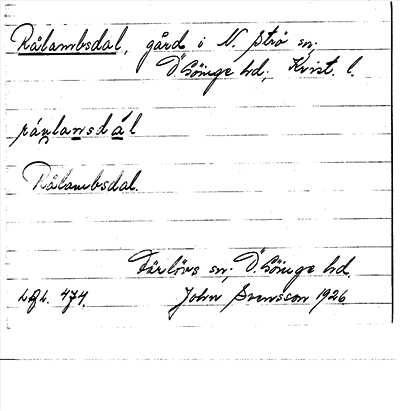 Rålambsdal, gård i N. Strö sn;
Ö. Göinge hd; Krist. l.
rǻu̯lansdál
Rålambsdal.
Färlövs sn; Ö. Göinge hd.
474. John Svensson 1926